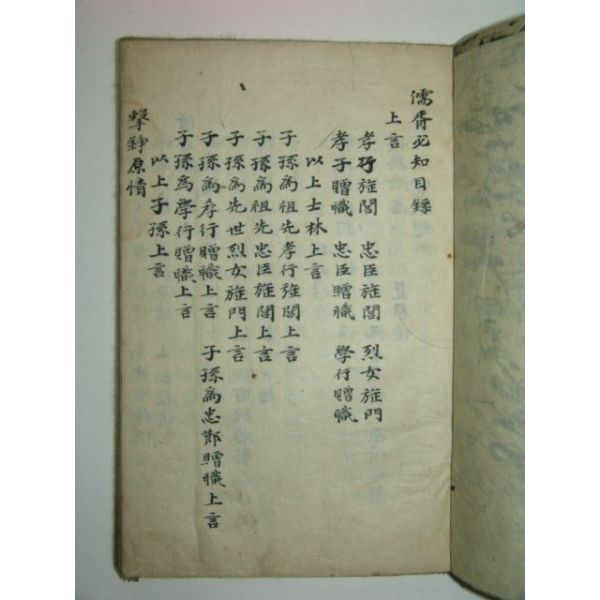 濡胥必知目錄
上言
孝行㫌閭 忠臣㫌閭 烈女㫌門
孝子贈職 忠臣贈職 學行贈職
以上士林上言
子孫爲祖先孝行㫌閭上言
子孫爲祖先忠臣㫌閭上言
子孫爲先世烈女㫌門上言
子孫爲孝行贈職上言 子孫爲忠節贈職上言
子孫爲學行贈職上言
以上子孫上言
擊錚原情